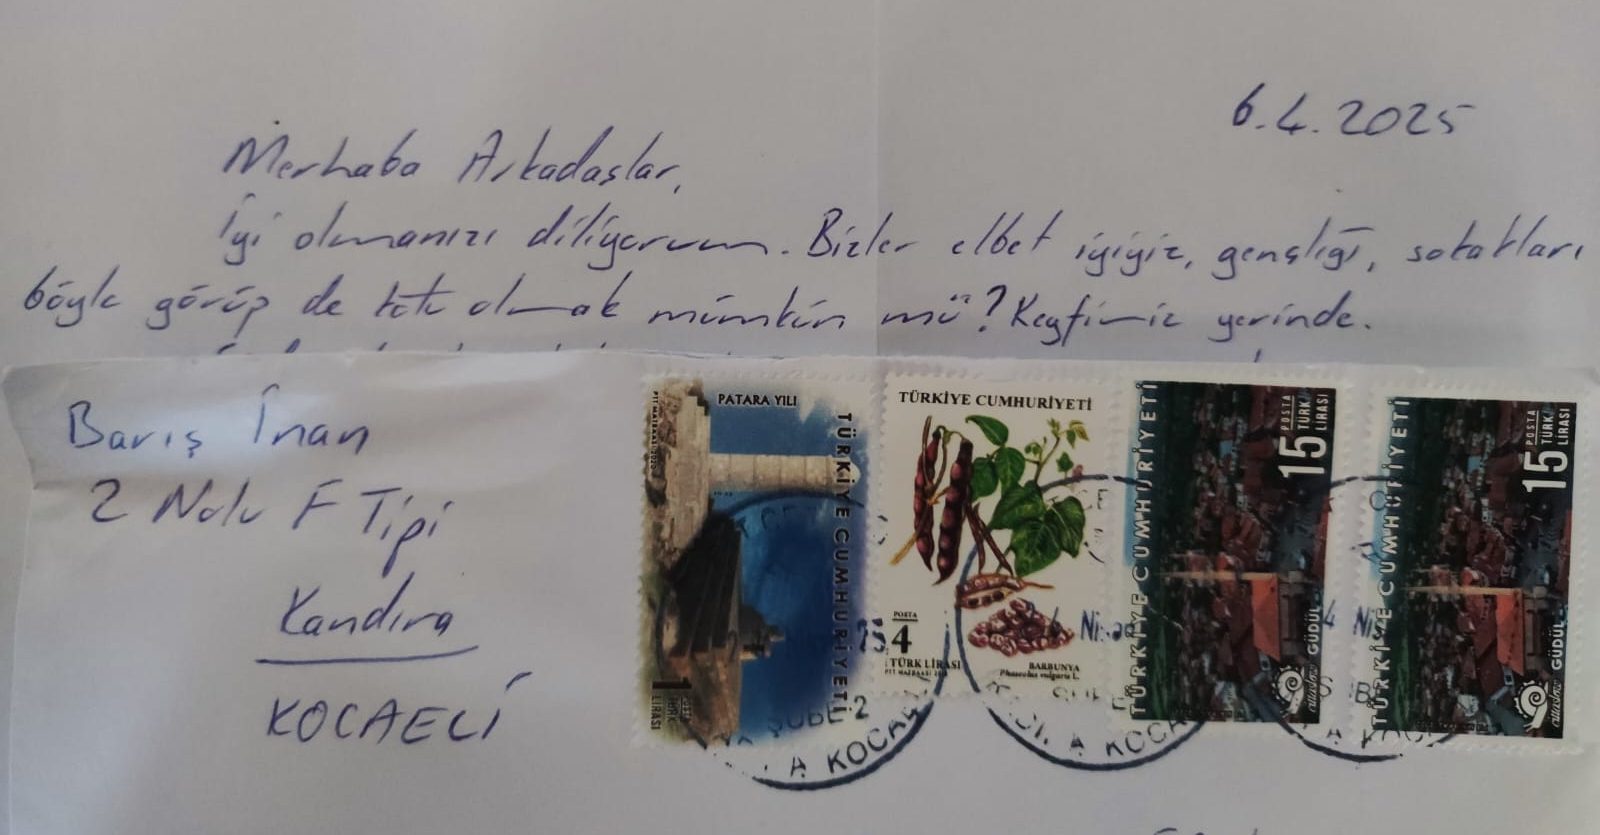 6.4.2025
Merhaba Arkadaşlar,
İyi olmanızı diliyorum. Bizler elbet iyiyiz, gençliği, sokakları
böyle görüp de kötü olmak mümkün mü? Keyfimiz yerinde.
Barış İnan
2 Nolu F Tipi
Kandıra
KOCAELİ
PATARA YILI
TÜRKİYE CUMHURİYETİ
1 TÜRK LİRASI
TÜRKİYE CUMHURİYETİ
POSTA
4
TÜRK LİRASI
BARBUNYA
Phaseolus vulgaris L.
TÜRKİYE CUMHURİYETİ
15 POSTA TÜRK LİRASI
GÜDÜL
cittaslow
TÜRKİYE CUMHURİYETİ
15 POSTA TÜRK LİRASI
GÜDÜL
cittaslow
ŞUBE 2